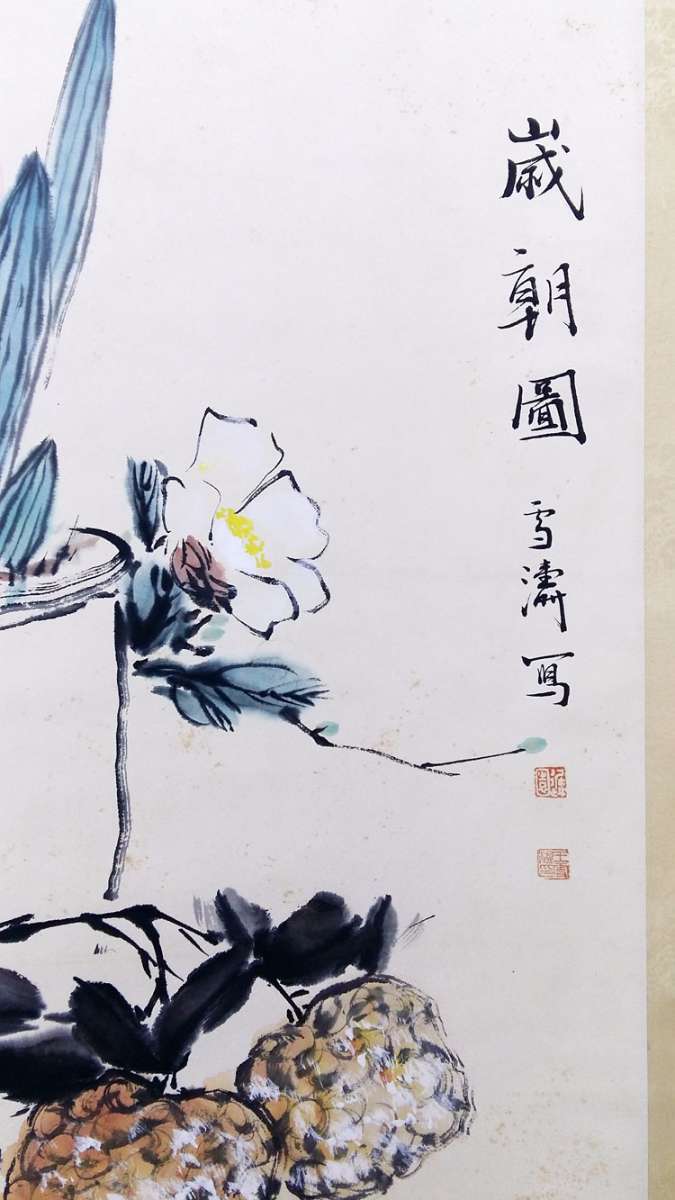 歲朝圖
雪濤寫